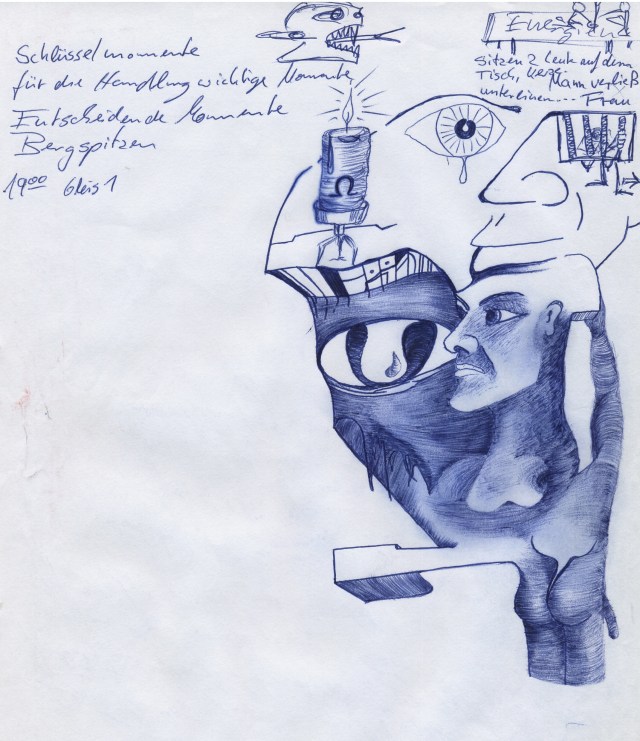 Schlüsselmomente
für die Handlung wichtige Momente
Entscheidende Momente
Bergspitzen
19⁰⁰ Gleis 1
Energien
sitzen 2 Leute auf dem
Tisch, Mann verließ
Frau
Ω